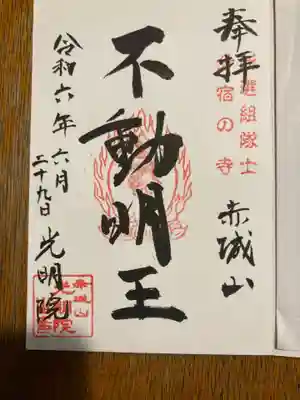 奉拝
新選組隊士
宿の寺
赤城山
不動明王
令和六年六月
二十九日
光明院